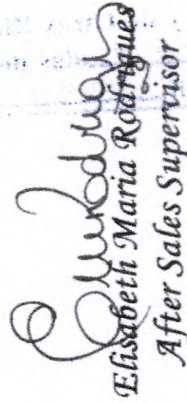 Elisabeth Maria Rodrigues
After Sales Supervisor